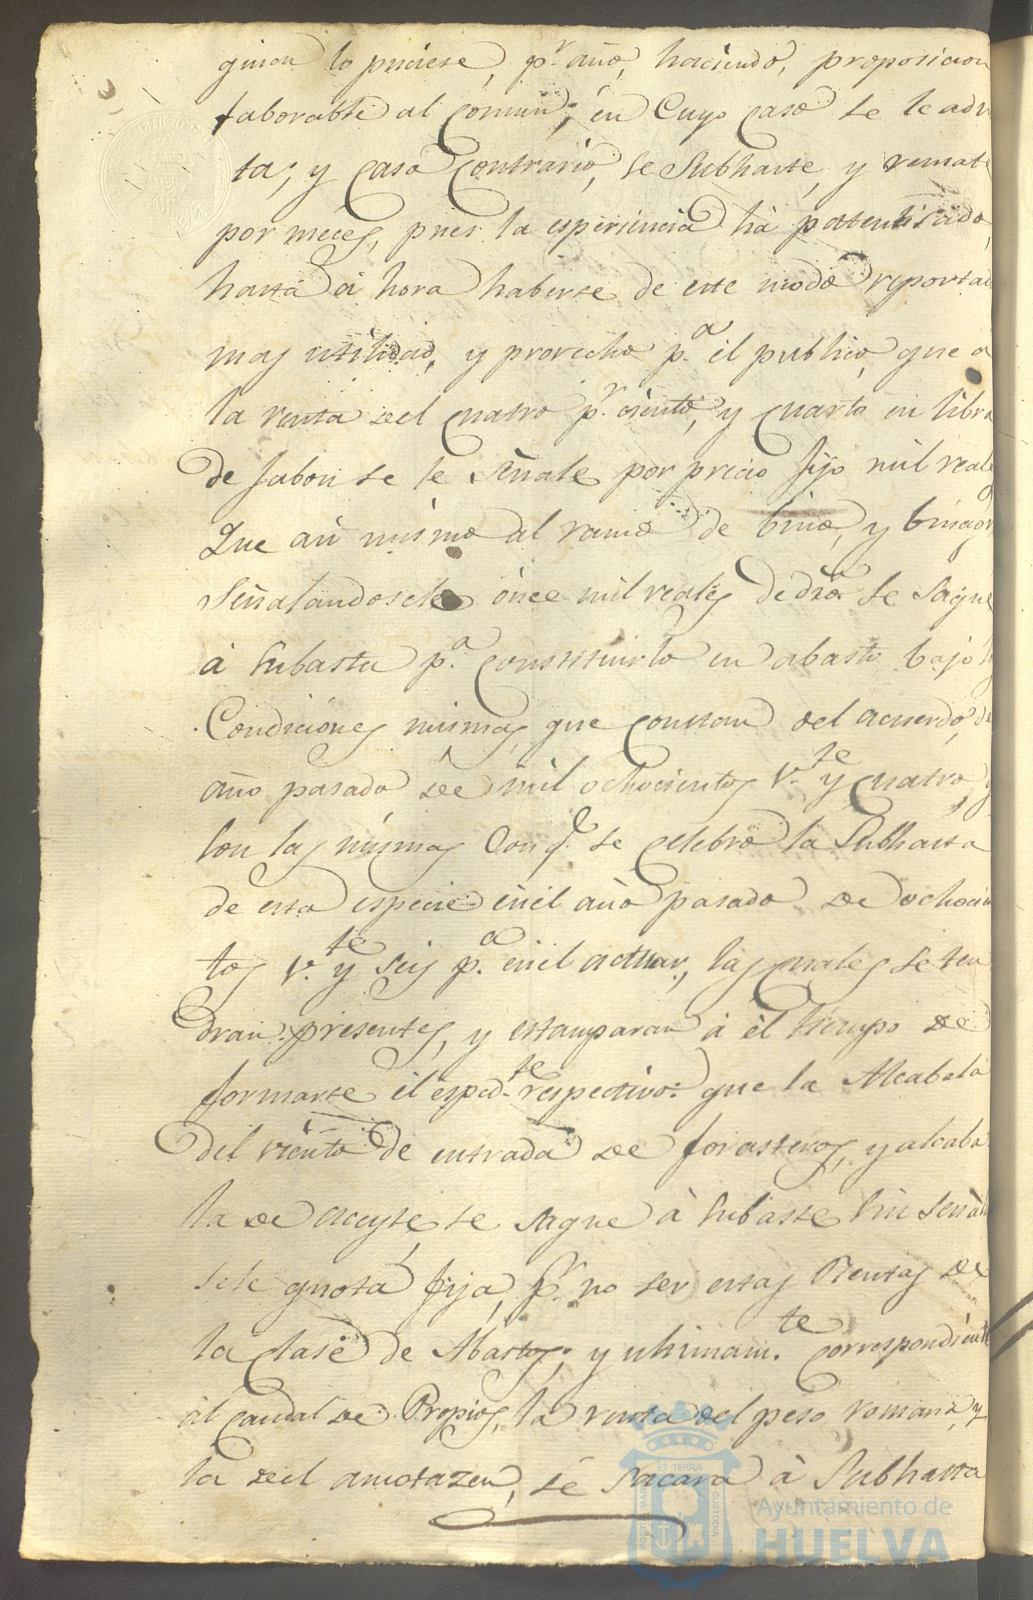 quien lo hiciese, pr. año, haciendo, proposicion
faborable al Comun; en Cuyo Caso se le admi
ta; y Caso Contrario, se Subhaste, y remate
por meces, pues la esperiencia hà patentisado,
hasta à hora haberse de este modo reportad
mas utilidad, y provecho pa. el publico, que a
la renta del quatro pr. ciento, y quarto en libra
de Jabon se le Señale por precio fijo mil reales
Que asi mismo al ramo de bino, y binagre
Señalandosele once mil reales de dro. se saque
à Subasta pa. Constituirlo en abasto bajo las
Condiciones mismas, que Constan del acuerdo, del
año pasado de mil ochocientos Vte. y quatro, y
Con las mismas Con qe. se Celebrò la Subhasta
de esta especie en el año pasado de ochocien
tos Vte. y Seis pa. en el actual, las quales se ten
dran presentes, y estamparan à el tiempo de
formarse el espedte. respectivo: que la Alcabala
del viento de entrada de forasteros, y alcaba
la de aceyte, se saque à Subasta Sin Señàlar
sele quota fija, pr. no ser estas Rentas de
la Clase de Abastos; y ultimamte. Correspondiente
al Caudal de Propios, la renta del peso romana, y
la del amotazen, se Sacarà à Subhasta
Ayuntamiento de
HUELVA